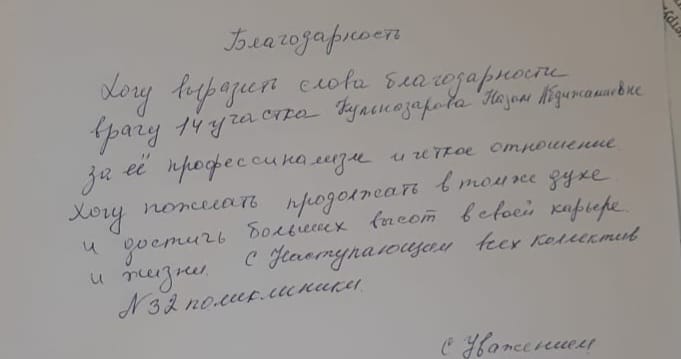 Благодарность
Хочу выразить слова благодарности
врачу 14 участка Кульнозарова Назам Абдижамиевне
за её профессинализм и чёткое отношение
Хочу пожелать продолжать в том же духе
и достичь больших высот в своей карьере
и жизни. С Наступающим всех коллектив
N32 поликлиники.
С Уважением